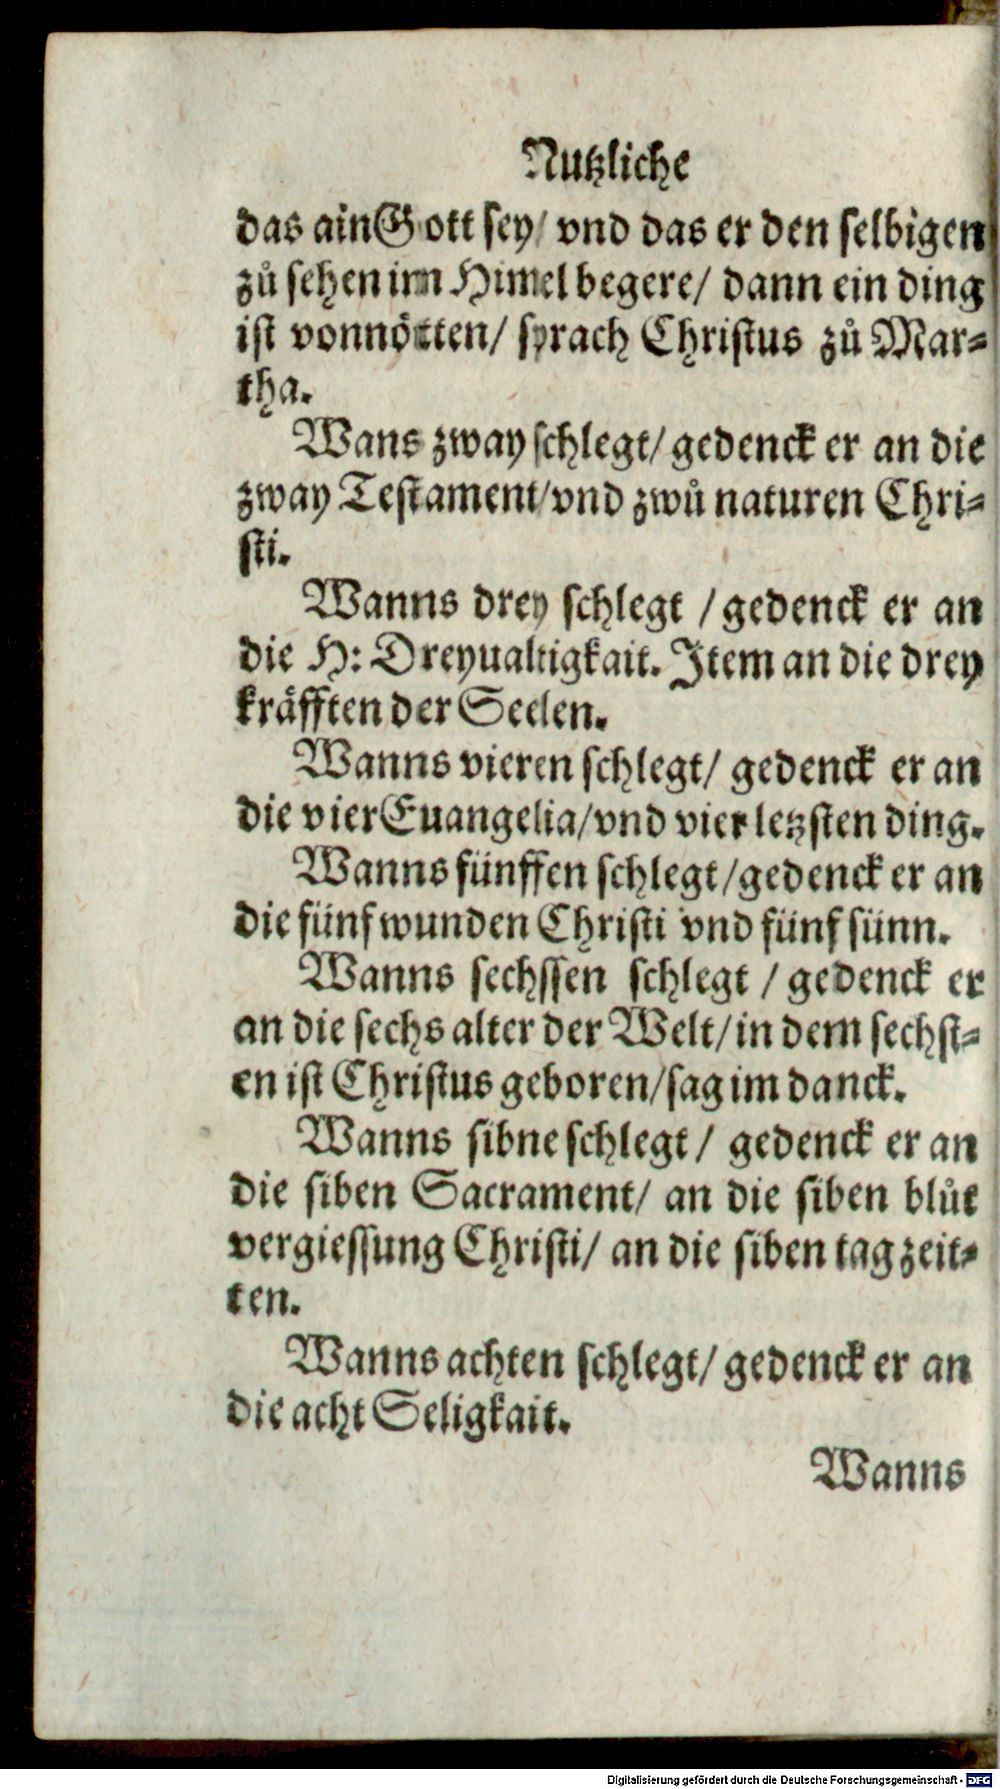 Nutzliche
das ain Gott sey/ vnd das er den selbigen
zů sehen im Himel begere/ dann ein ding
ist vonnötten/ sprach Christus zů Mar⸗
tha.
Wans zway schlegt/ gedenck er an die
zway Testament/ vnd zwů naturen Chri⸗
sti.
Wanns drey schlegt / gedenck er an
die H: Dreyualtigkait. Item an die drey
kräfften der Seelen.
Wanns vieren schlegt/ gedenck er an
die vier Euangelia/ vnd vier letzsten ding.
Wanns fünffen schlegt/ gedenck er an
die fünf wunden Christi vnd fünf sünn.
Wanns sechssen schlegt / gedenck er
an die sechs alter der Welt/ in dem sechst⸗
en ist Christus geboren/ sag im danck.
Wanns sibne schlegt / gedenck er an
die siben Sacrament/ an die siben blůt
vergiessung Christi/ an die siben tag zeit⸗
ten.
Wanns achten schlegt/ gedenck er an
die acht Seligkait.
Wanns
Digitalisierung gefördert durch die Deutsche Forschungsgemeinschaft - DFG